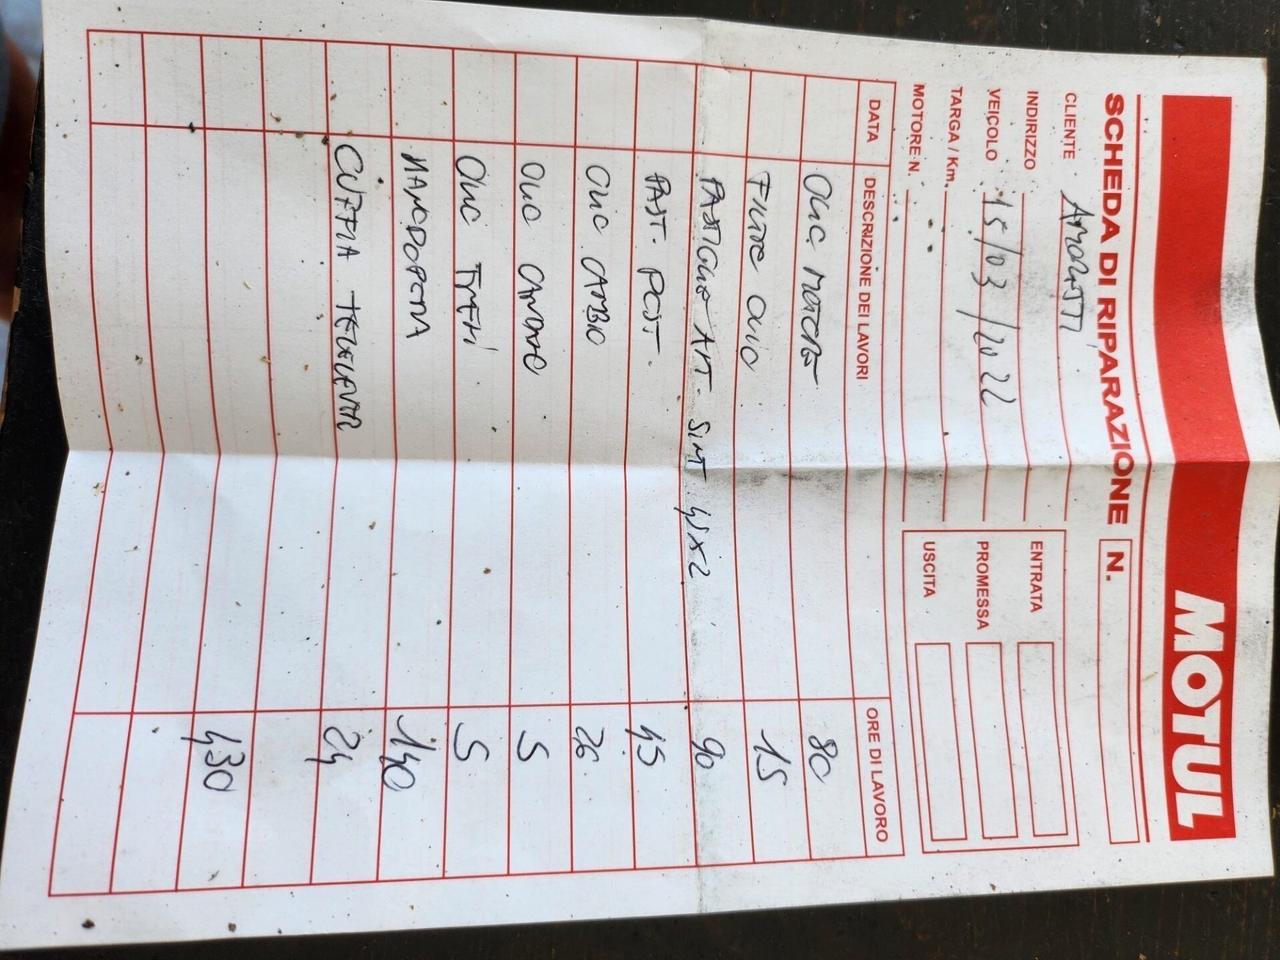 MOTUL
SCHEDA DI RIPARAZIONE N.
CLIENTE
INDIRIZZO
VEICOLO 15/03/2022
TARGA / Km.
MOTORE N.
ENTRATA
PROMESSA
USCITA
DATA DESCRIZIONE DEI LAVORI ORE DI LAVORO
OLIO MOTORE 80
FILTRO OLIO 15
PASTIGLIE ANT. SINT 45x2 90
PAST. POST. 45
OLIO CAMBIO 26
OLIO CARDANO 5
OLIO FRENI 5
MANODOPERA 140
CUFFIA 24
430